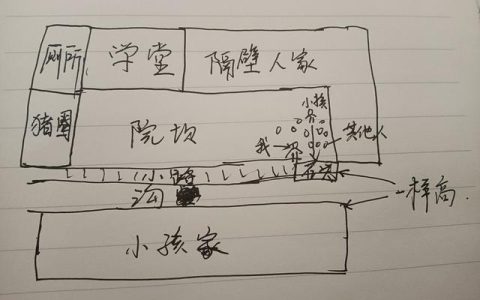 厕所 学堂 隔壁人家
猪圈 院坎
小孩
其他人
我
小路
石头
沟
一样高
小孩家